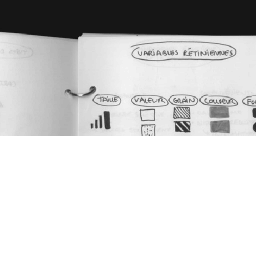 VARIABLES RÉTINIENNES
TAILLE VALEUR GRAIN COULEUR